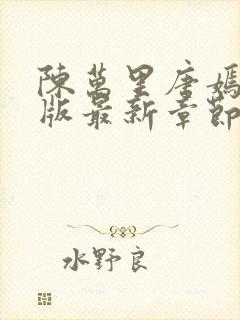 陳萬里唐嫣
版最新章節
水野良